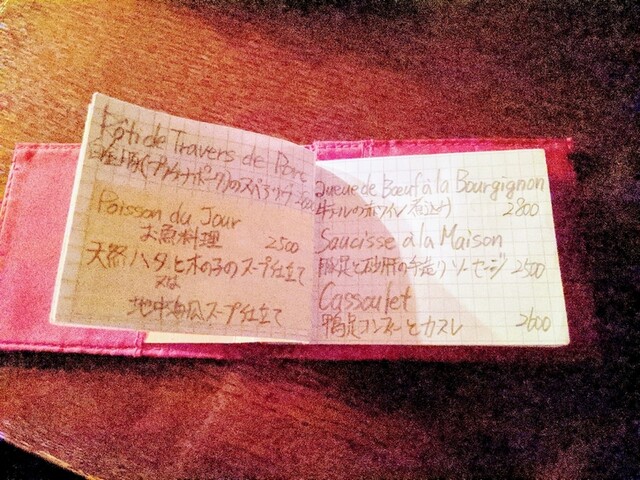 Rôti de Travers de Porc
のスペアリブ
Poisson du Jour
お魚料理 2500
天然ハタと木の子のスープ仕立て
又は
地中海風スープ仕立て
Queue de Bœuf à la Bourgignon
牛テールの赤ワイン煮込み 2800
Saucisse à la Maison
豚足と砂肝の手造りソーセージ 2500
Cassoulet
鴨足コンフィーとカスレ 2600